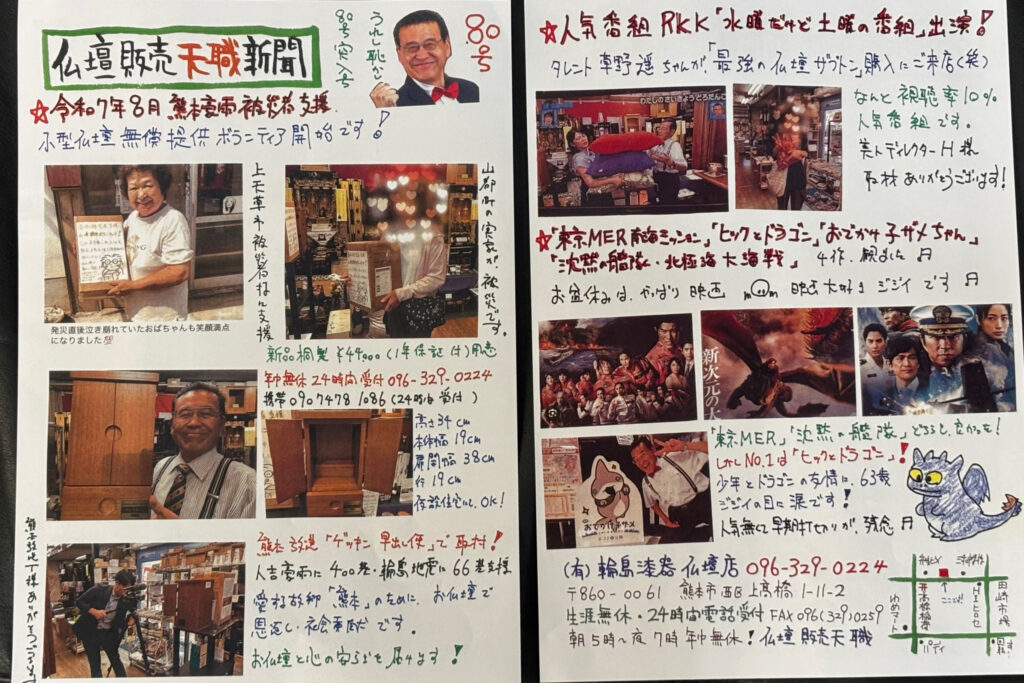 仏壇販売天職新聞
うれし恥かし
80号突入号
80号
☆令和7年8月熊本豪雨被災者支援
小型仏壇無償提供ボランティア開始です!
上天草市被災者様に支援
山都町の実家が被災です。
発災直後泣き崩れていたおばちゃんも笑顔満点
になりました
新品桐製¥44,000(1年保証付)用意
年中無休24時間受付096-329-0224
携帯090 7478 1086(24時間受付)
高さ34cm
本体幅19cm
扉開幅38cm
奥行19cm
仮設住宅にもOK!
熊本放送「ゲツキン早出し便」で取材!
人吉豪雨に400基・輪島地震に66基支援
愛する故郷「熊本」のために、お仏壇で
恩返し・社会奉仕です。
お仏壇と心の安らぎを届けます!
☆人気番組RKK「水曜だけど土曜の番組」出演!
タレント草野遥ちゃんが「最強の仏壇ザブトン」購入にご来店(笑)
わたしのさいきょうどろだんご
なんと視聴率10%
人気番組です。
美人ディレクターH様
取材ありがとうございます!
☆「東京MER南海ミッション」「ヒックとドラゴン」「おでかけ子ザメちゃん」
「沈黙の艦隊・北極海大海戦」4作、観ました♫
お盆休みは、やっぱり映画 m〇m 映画大好きジジイです♫
新次元の大
おでかけ子ザメ
「東京MER」「沈黙の艦隊」どちらも、良かった!
しかしNo.1は「ヒックとドラゴン」!
少年とドラゴンの友情に、63歳
ジジイの目に涙です!
人気無くて早期打ち切りが、残念♫
(有)輪島漆器仏壇店 096-329-0224
〒860-0061 熊本市西区上高橋1-11-2
生涯無休・24時間電話受付 FAX096(329)0259
朝5時〜夜7時年中無休!仏壇販売天職
ここです!
高橋稲荷
ゆめマート
ヒロセ
田崎市場